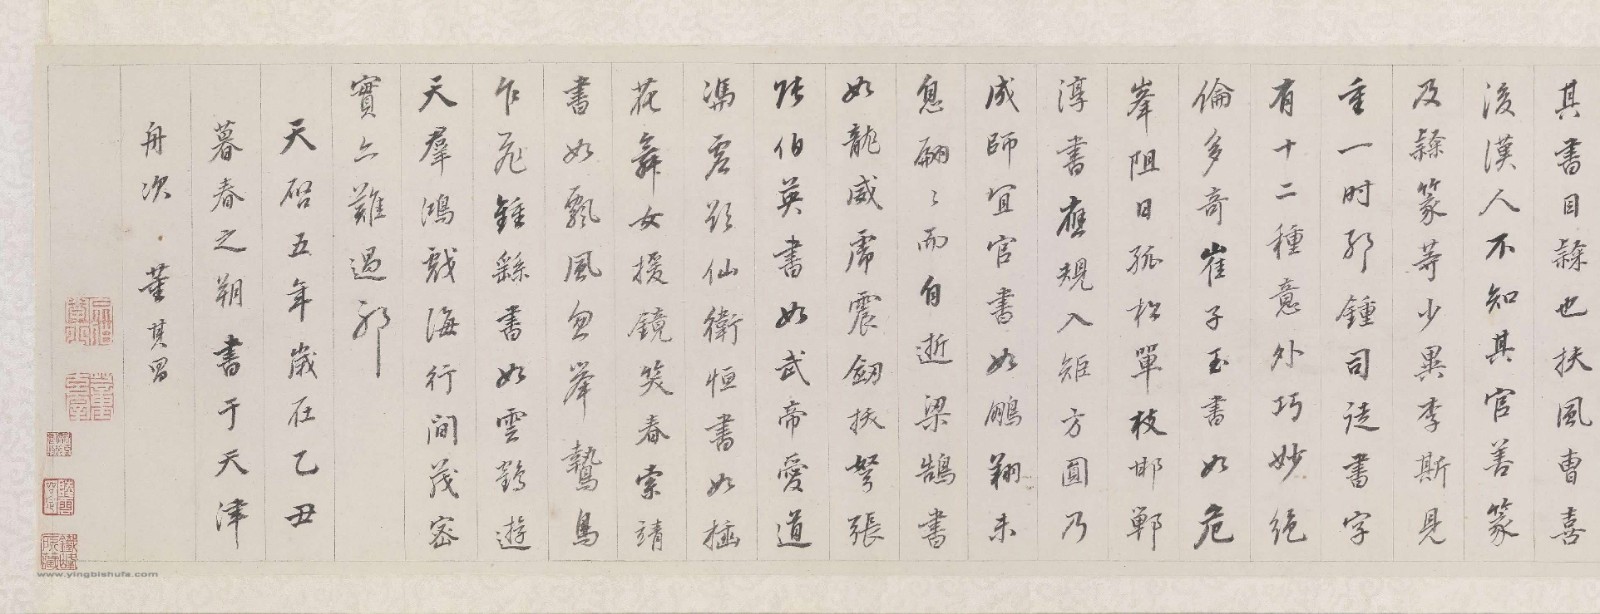 其書目隸也扶風曹喜
後漢人不知其官善篆
及隸篆等少異李斯見
重一時耶鍾司徒書字
有十二種意外巧妙绝
倫多奇崔子玉書如危
峯阻日孤松單枝邯鄲
淳書應規入矩方圓乃
成師宜官書如鵬翔未
息翩〻而自逝梁鵠書
如龍威虎震劔拔弩張
張伯英書如武帝愛道
馮虚欲仙衛恒書如插
花舞女援鏡笑春索靖
書如飄風忽舉鷙鳥
乍飛鍾繇書如雲鶴遊
天羣鴻戲海行間茂密
實亦難過耶
天啓五年歲在乙丑
暮春之朔書于天津
舟次 董其昌
www.yingbishufa.com